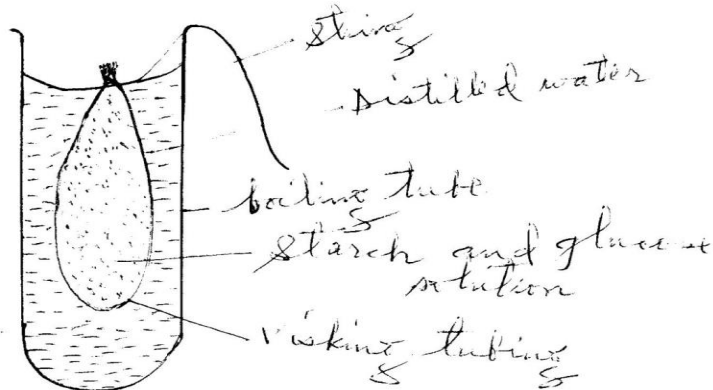 String
Distilled water
boiling tube
Starch and glucose
solution
Visking tubing